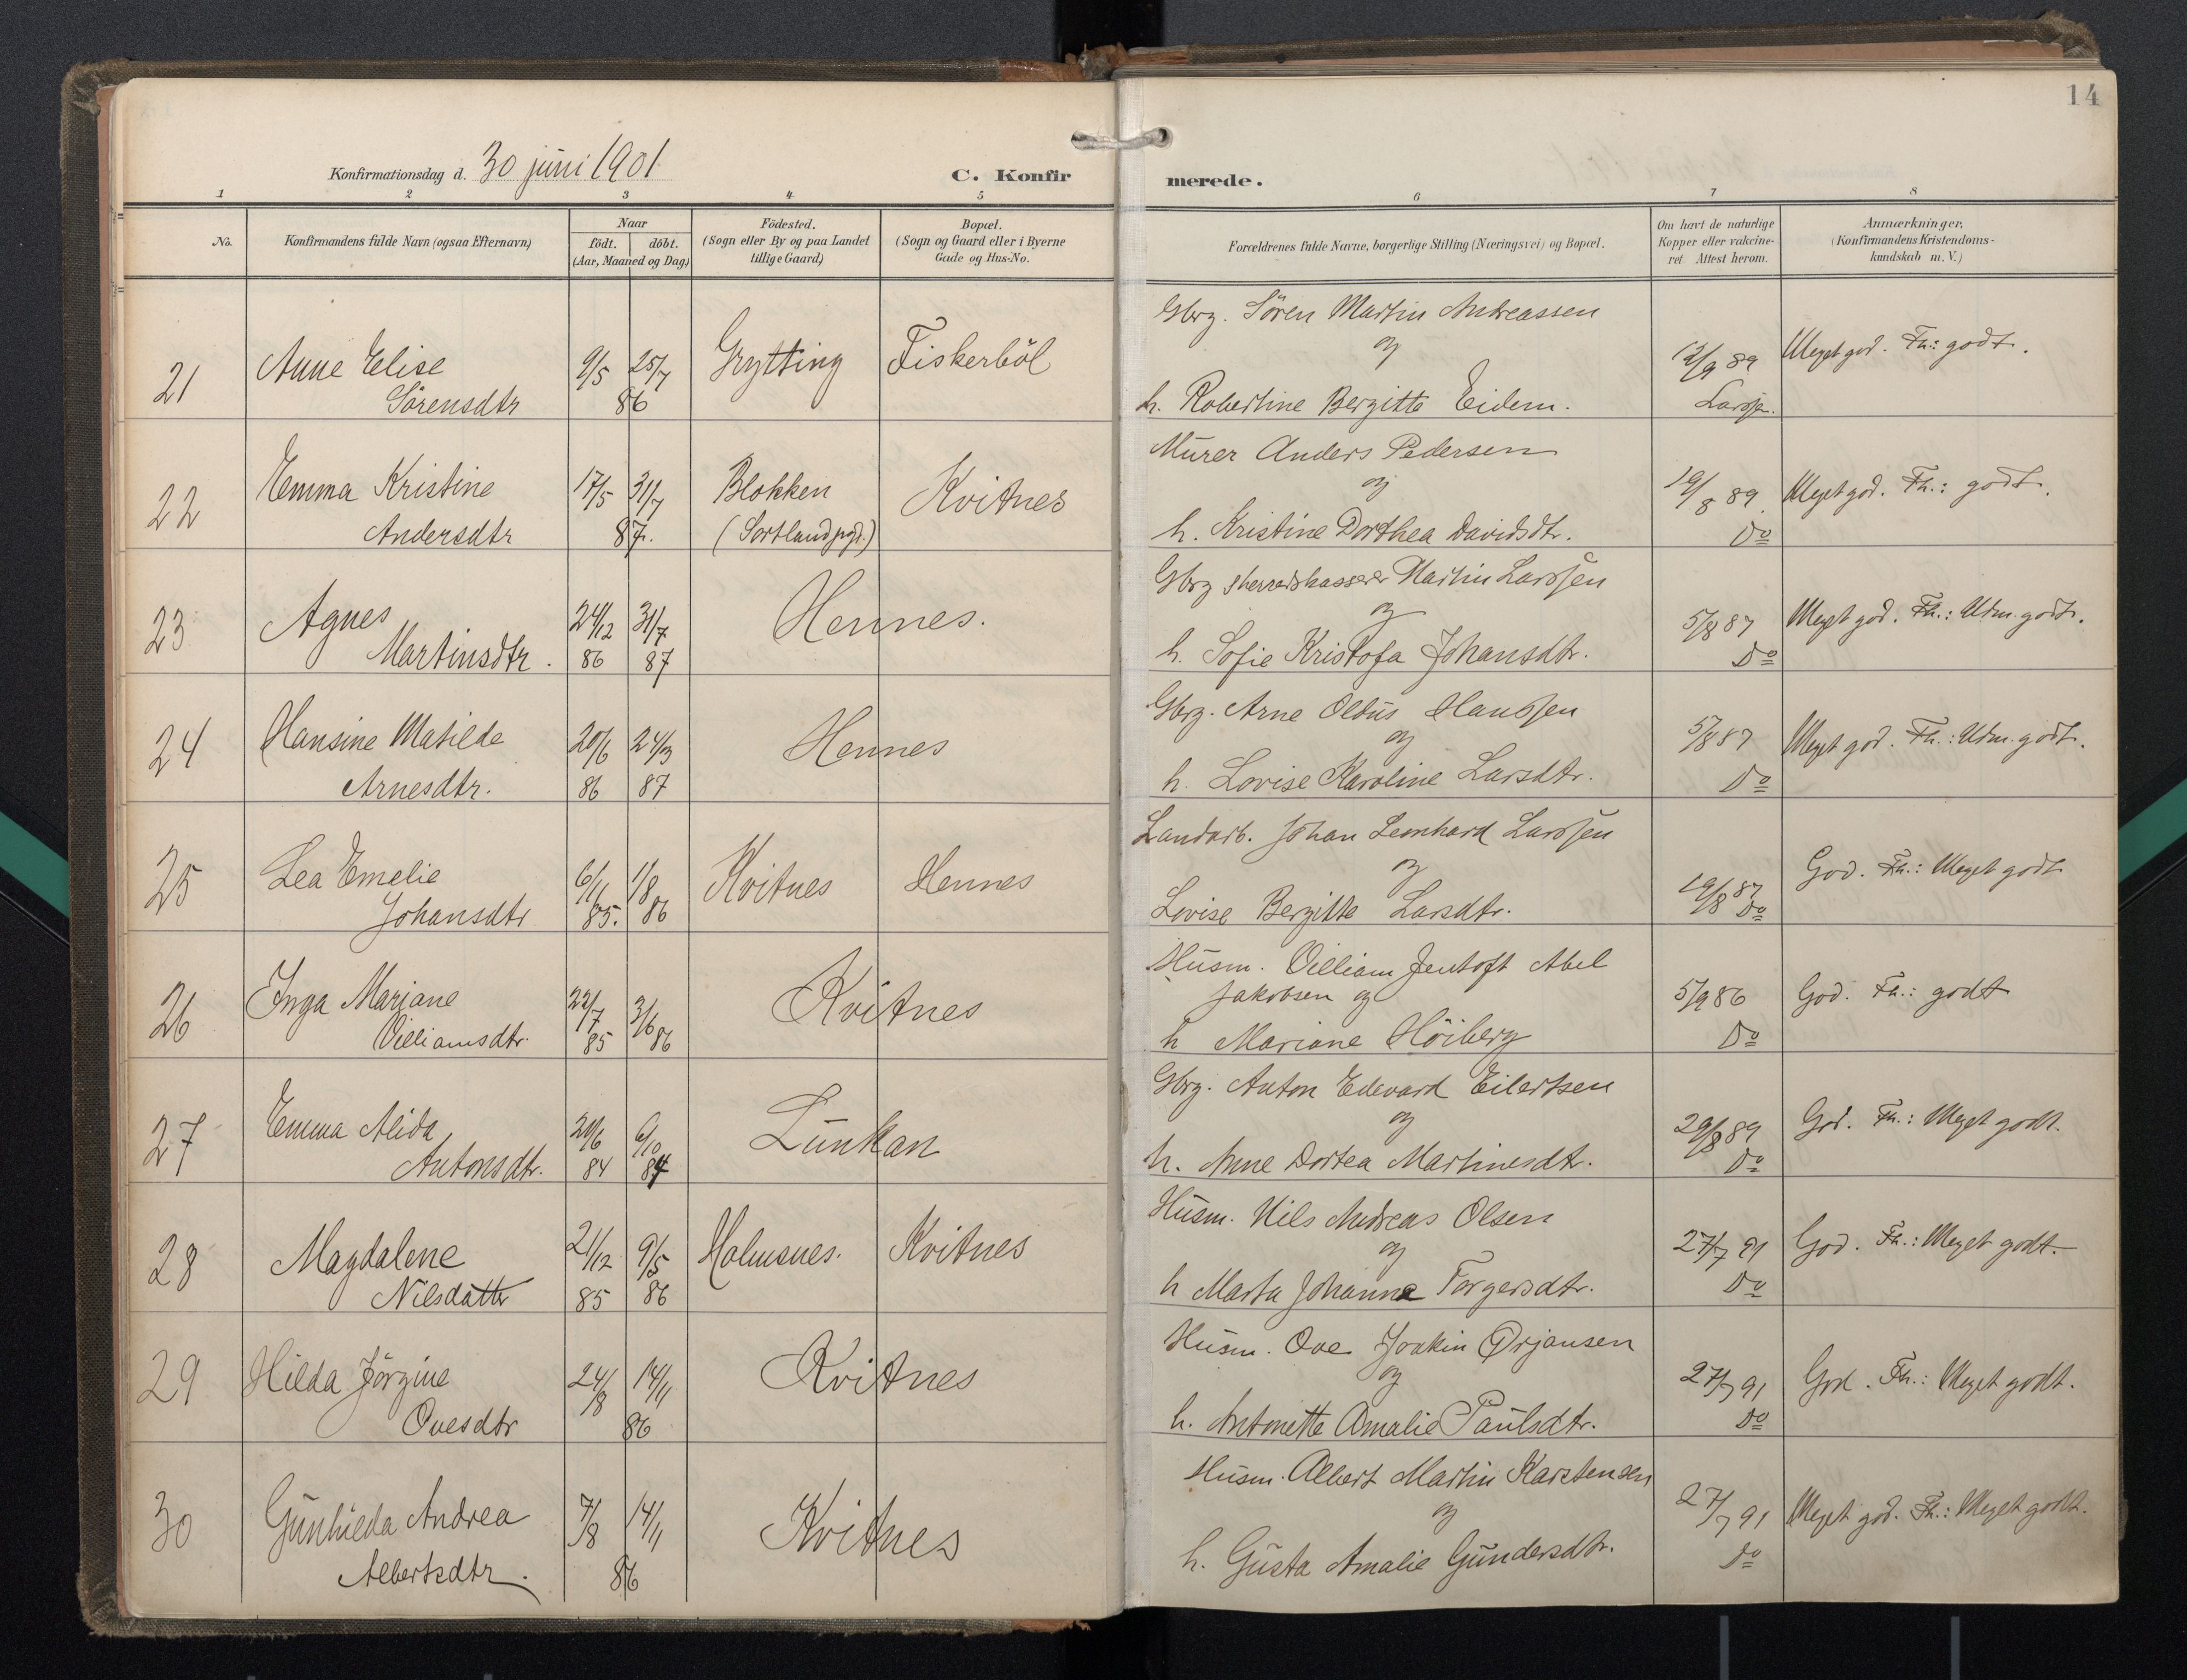 14
Konfirmationsdag d. 30 juni 1901
C. Konfir
merede.
1 2 3 4 5 6 7 8
No.
Konfirmandens fulde Navn (ogsaa Efternavn)
Naar
födt. döbt.
(Aar, Maaned og Dag)
Födested.
(Sogn eller By og paa Landet
tillige Gaard)
Bopæl.
(Sogn og Gaard eller i Byerne
Gade og Hus-No.
Forældrenes fulde Navne, borgerlige Stilling (Næringsvei) og Bopæl.
Om havt de naturlige
Kopper eller vakcine-
ret Attest herom.
Anmærkninger,
(Konfirmandens Kristendoms-
kundskab m.V.)
21 Anne Elise
Sörensdtr
9/5 25/7
86
Grytting
Fiskerböl
Gbrg. Sören Martin Andreassen
og
h. Robertine Bergitte Eidem.
12/9 89
Larssen.
Meget god. Fh.: godt.
22 Emma Kristine
Andersdtr
17/5 31/7
87.
Blokken
(Sortland pgd.)
Kvitnes
Murer Anders Pedersen
og
h. Kristine Dorthea Davidsdtr.
19/8 89
Do
Meget god. Fh.: godt.
23 Agnes
Martinsdtr.
24/12 31/7
86 87
Hennes.
Gbrg & herredskasserer Martin Larssen
og
h. Sofie Kristofa Johansdtr.
5/8 87
Do
Meget god. Fh.: Udm. godt.
24 Hansine Matilde
Arnesdtr.
20/6 24/3
86 87
Hennes
Gbrg. Arne Oldus Hanssen
og
h. Lovise Karoline Larsdtr.
5/8 87
Do
Meget god. Fh.: Udm. godt.
25 Lea Emelie
Johansdtr
6/11 1/8
85. 86
Kvitnes
Hennes
Landarb. Johan Leonhard Larssen
og
Lovise Bergitte Larsdtr.
19/8 87
Do
God. Fh.: Meget godt
26 Inga Mariane
Villiamsdtr.
22/7 3/6
85 86
Kvitnes
Husm. Villiam Jentoft Abel
Jakobsen og
h Mariane Höiberg
5/9 86
Do
God. Fh.: godt
27 Emma Alida
Antonsdtr.
20/6 6/10
84 84
Lunkan
Gbrg. Anton Edevard Eilertsen
og
h. Anne Dortea Martinesdtr.
29/8 89
Do
God. Fh.: Meget godt.
28 Magdalene
Nilsdatter
21/12 9/5
85 86
Holmsnes.
Kvitnes
Husm. Nils Andreas Olsen
og
h Marta Johanna Torgersdtr.
27/7 91
Do
God. Fh.: Meget godt.
29 Hilda Jörgine
Ovesdtr
24/8 14/11
86
Kvitnes
Husm. Ove Joakin Ørjansen
og
h. Antonette Amalie Paulsdtr.
27/7 91
Do
God. Fh.: Meget godt.
30 Gunhilda Andrea
Albertsdtr.
7/8 14/11
86
Kvitnes
Husm. Albert Martin Karstensen
og
h. Gusta Amalie Gundersdtr.
27/7 91
Do
Meget god. Fh.: Meget godt.